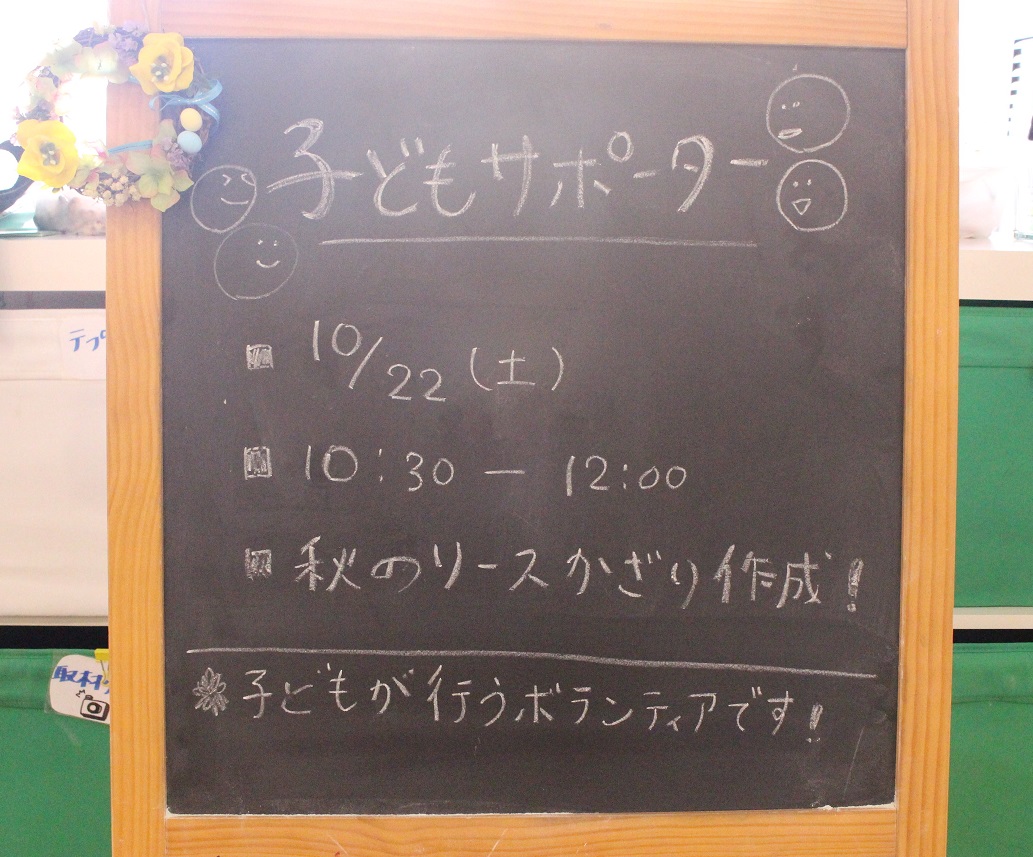 子どもサポーター
10/22 (土)
10:30 — 12:00
秋のリースかざり作成!
子どもが行うボランティアです!
テプ
取材